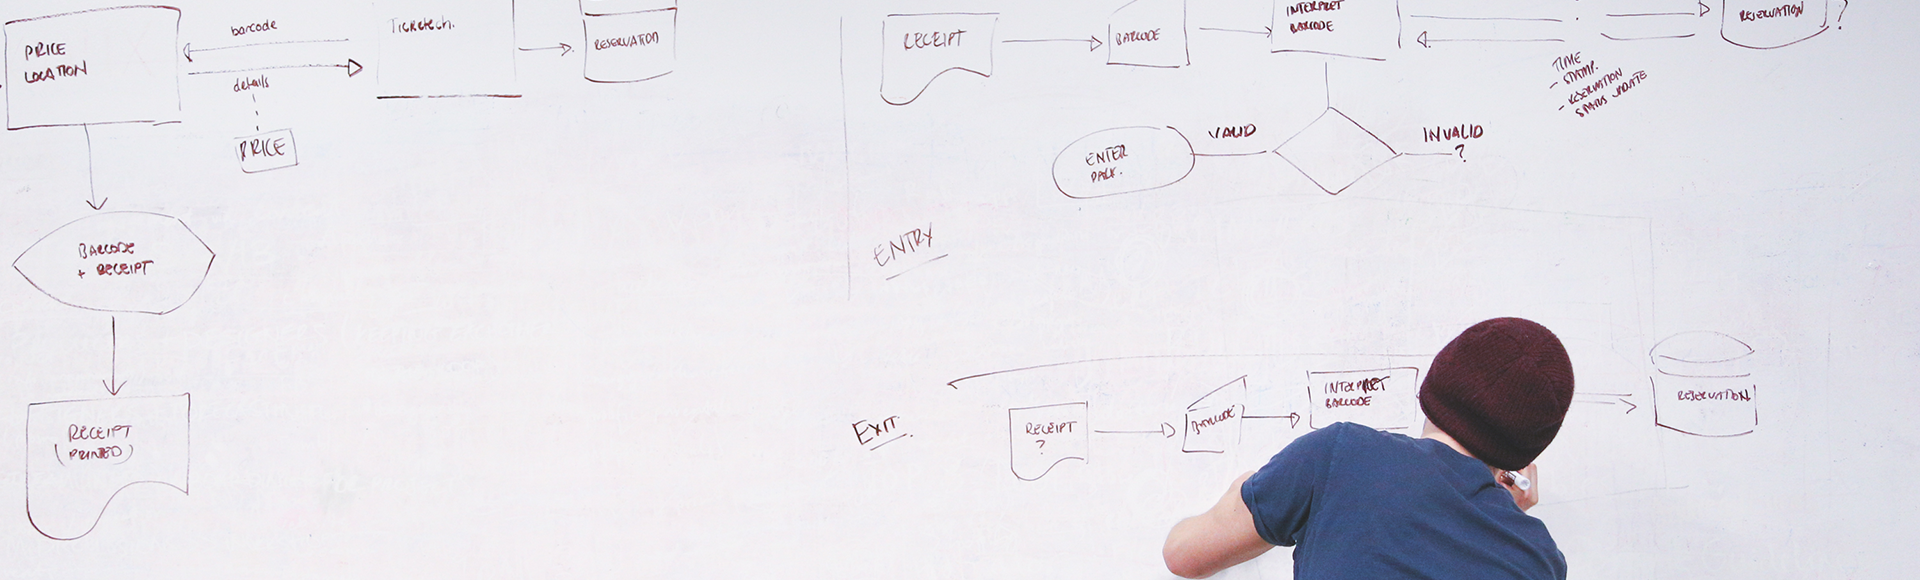 PRICE
LOCATION
barcode
details
PRICE
Ticketech.
RESERVATION
BARCODE
+ RECEIPT
RECEIPT
(PRINTED)
RECEIPT
BARCODE
INTERPRET
BARCODE
RESERVATION ?
TIME
- STAMP.
- RESERVATION
STATUS UPDATE
VALID
INVALID
?
ENTER
PARK.
ENTRY
EXIT.
RECEIPT
?
BARCODE
INTERPRET
BARCODE
RESERVATION